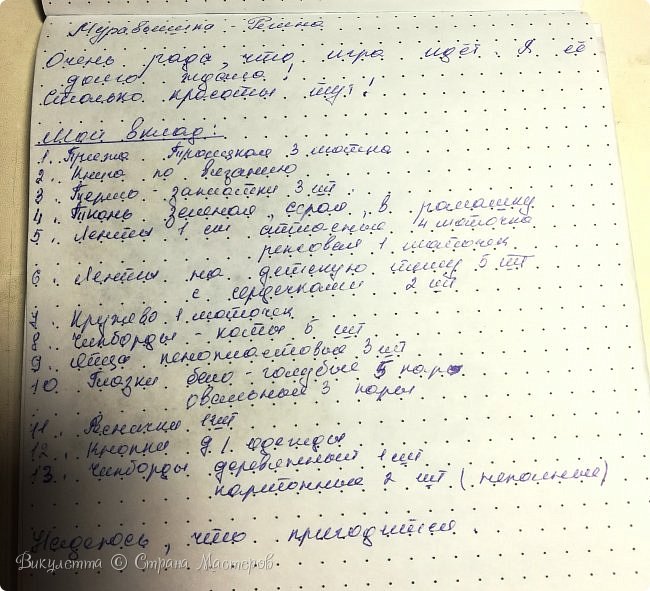 Муравьишка - Гелина
Очень рада, что игра идёт. Я её
долго ждала!
Столько красоты тут!
Мой вклад:
1. Пряжа Троицкая 3 мотка
2. Книга по вязанию
3. Термо - заплатки 3 шт
4. Ткань зеленая, серая, в ромашку
5. Ленты 1 см атласные 4 моточка
репсовая 1 моточек
6. Ленты на детскую тему 5 шт
с сердечками 2 шт
7. Кружево 1 моточек
8. Чипборды - коты 6 шт
9. Яйца пенопластовые 3 шт
10. Глазки бело - голубые 5 пар
овальные 3 пары
11. Реснички 1 шт
12. Кнопки д/ одежды
13. Чипборды деревянный 1 шт
картонные 2 шт (неполные)
Надеюсь, что пригодится.
Викулетта © Страна Мастеров